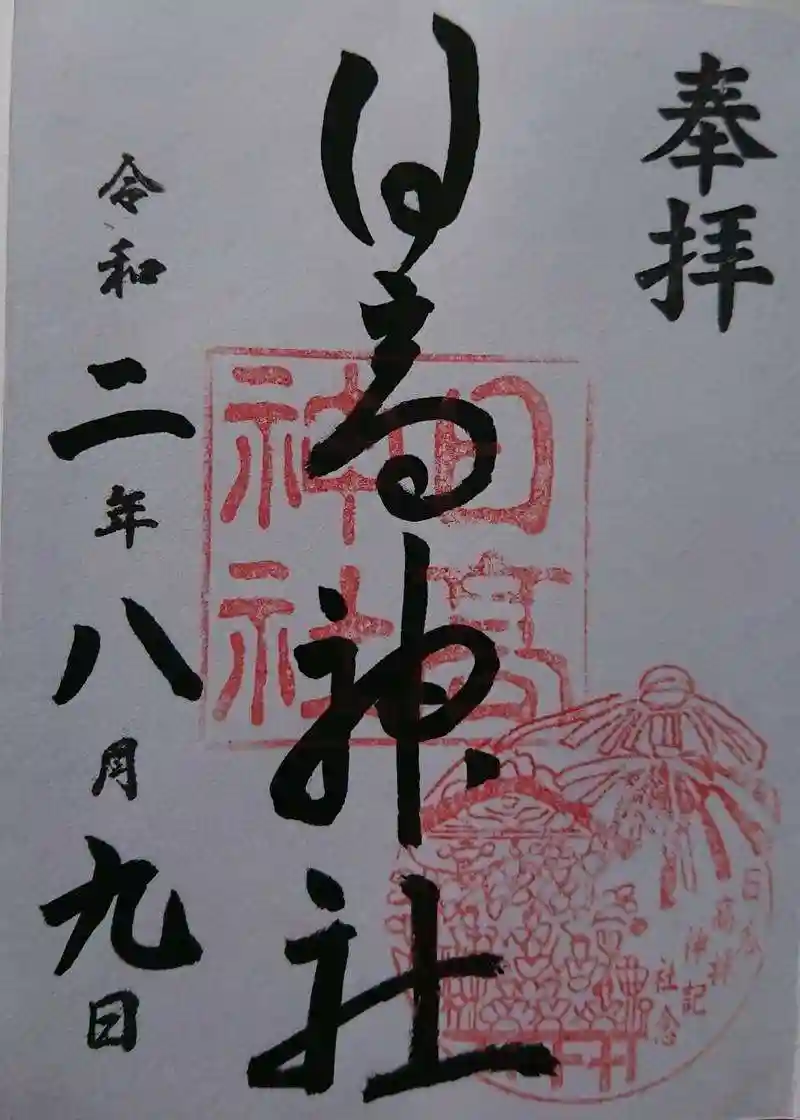 奉拝
日高神社
日高
神社
日高神社
参拝記念
令和二年八月九日